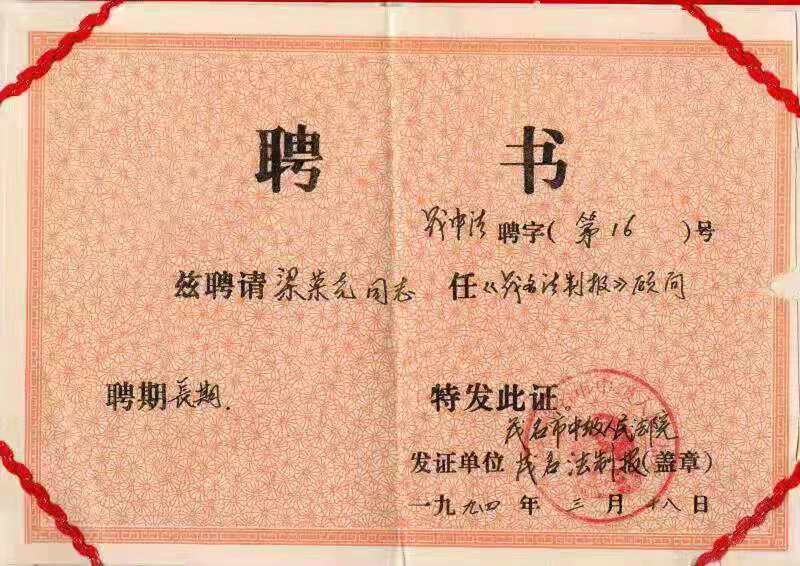 聘 书
茂中法 聘字( 第16 )号
兹聘请梁荣亮同志 任《茂名法制报》顾问
聘期長期.
特发此证。
茂名市中级人民法院
发证单位 茂名法制报(盖章)
一九九四 年 三 月 十八 日